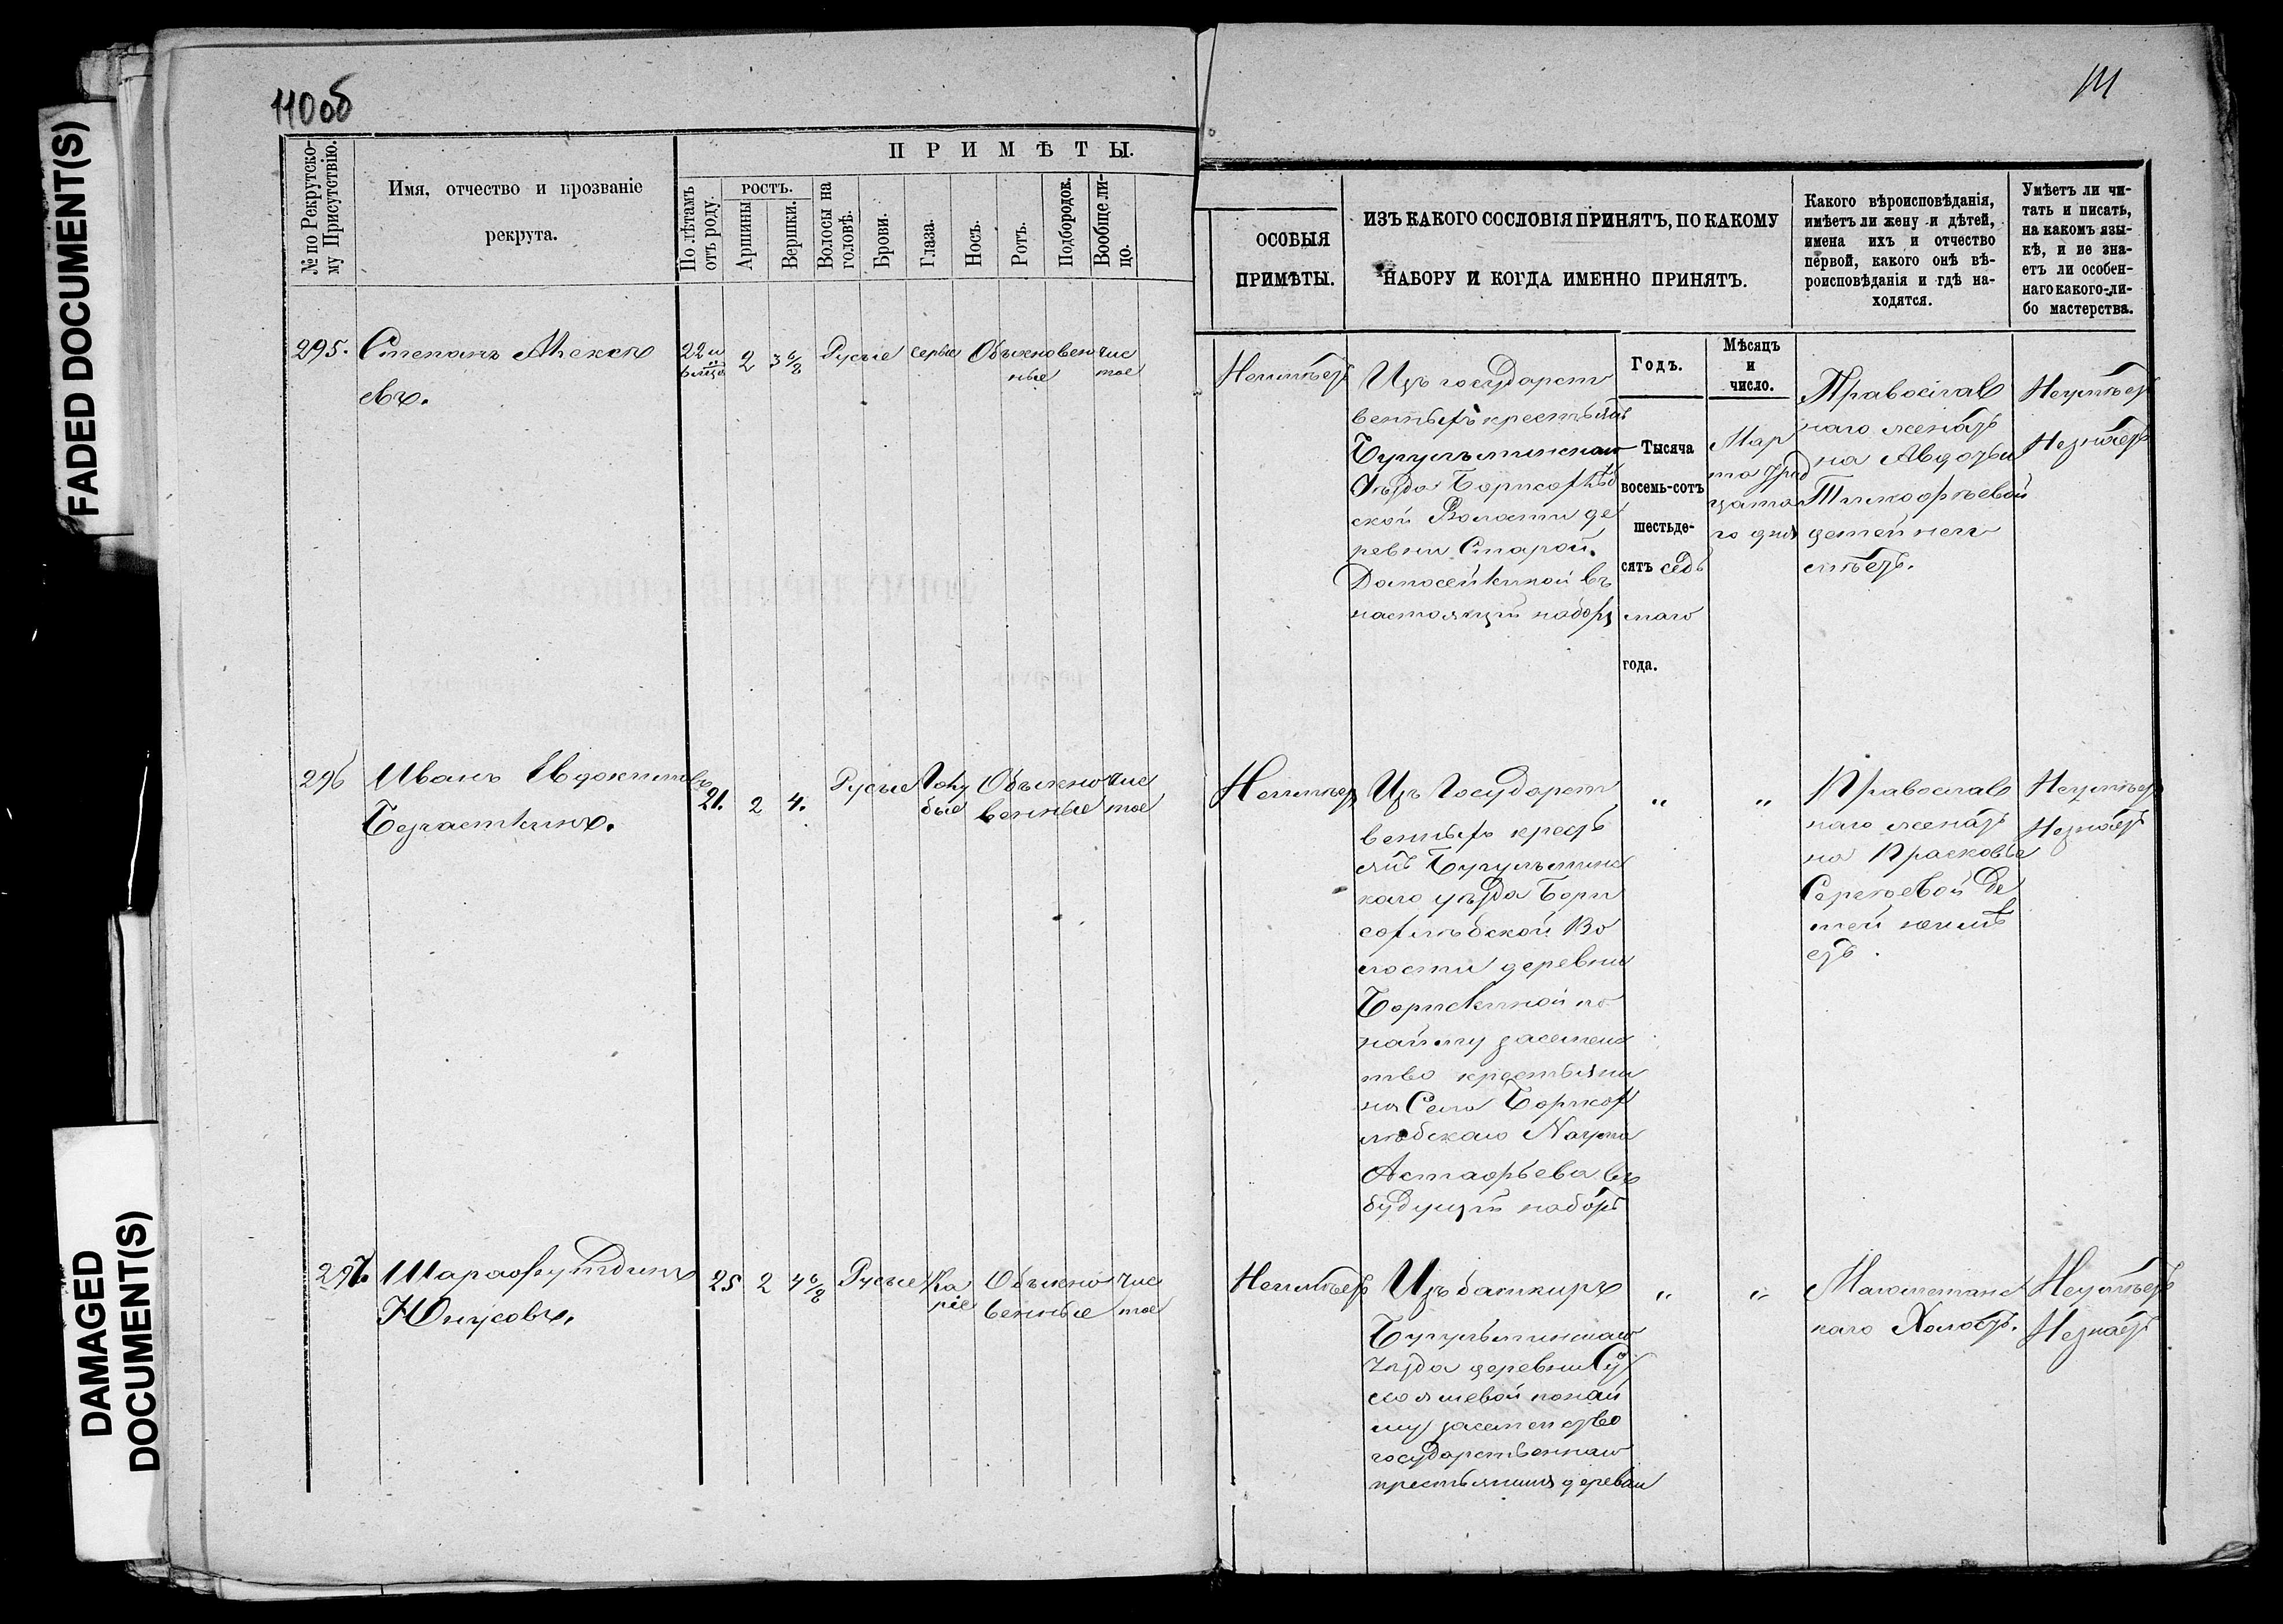 FADED DOCUMENT(S)
DAMAGED
DOCUMENT(S)
110об
111
№ по Рекрутско-
му Присутствію.
Имя, отчество и прозваніе
рекрута.
ПРИМѢТЫ.
По лѣтамъ
отъ роду.
РОСТЪ.
Аршины
Вершки.
Волосы на
головѣ.
Брови.
Глаза.
Носъ.
Ротъ.
Подбородок.
Вообще ли-
цо.
ОСОБЫЯ
ПРИМѢТЫ.
ИЗЪ КАКОГО СОСЛОВІЯ ПРИНЯТЪ, ПО КАКОМУ
НАБОРУ И КОГДА ИМЕННО ПРИНЯТЪ.
Какого вѣроисповѣданія,
имѣетъ ли жену и дѣтей,
имена ихъ и отчество
первой, какого онѣ вѣ-
роисповѣданія и гдѣ на-
ходятся.
Умѣетъ ли чи-
тать и писать,
на какомъ язы-
кѣ, и не зна-
етъ ли особен-
наго какого-ли-
бо мастерства.
295.
Степанъ Алексѣ
евъ.
22 и
6 мѣц
2
3 6/8
Русые
серые
Обыкновен
ные
чис
тое
Неимѣетъ
Изъ государст
венныхъ крестьянъ
Бугульминскаго
Уѣзда Борисоглѣб
ской Волости де
ревни Старой
Домосейкиной въ
настоящій наборъ
Годъ.
Тысяча
восемь-сотъ
шестьде-
сятъ седь
маго
года.
Мѣсяцъ
и
число.
Мар
та трид
цата
го дня
Православ
наго женатъ
на Авдотьи
Тимофѣевой
детей неи
мѣетъ.
Неумѣетъ
Незнаетъ
296
Иванъ Евдокимовъ
Безчасткинъ.
21.
2
4.
Русые
Голу
бые
Обыкно
венные
чис
тое
Неимѣетъ
Изъ Государст
венныхъ кресть
янъ Бугульминс
каго уѣзда Бори
соглѣбской Во
лости деревни
Борискиной по
найму заместе
тво крестьяни
на Села Борисог
лѣбскаго Наума
Астафьева въ
будущій наборъ
„
„
Православ
наго женатъ
на Прасковье
Сергѣевой Де
тей неимѣ
етъ.
Неумѣетъ
Незнаетъ
297.
Шарафутдинъ
Юнусовъ.
25
2
4 6/8
Русые
Ка
ріе
Обыкно
венные
чис
тое
Неимѣетъ
Изъ башкиръ
Бугульминскаго
Уѣзда деревни
по най
му
государственнаго
крестьянина деревни
„
„
Магометанс
каго Холостъ.
Неумѣетъ
Незнаетъ